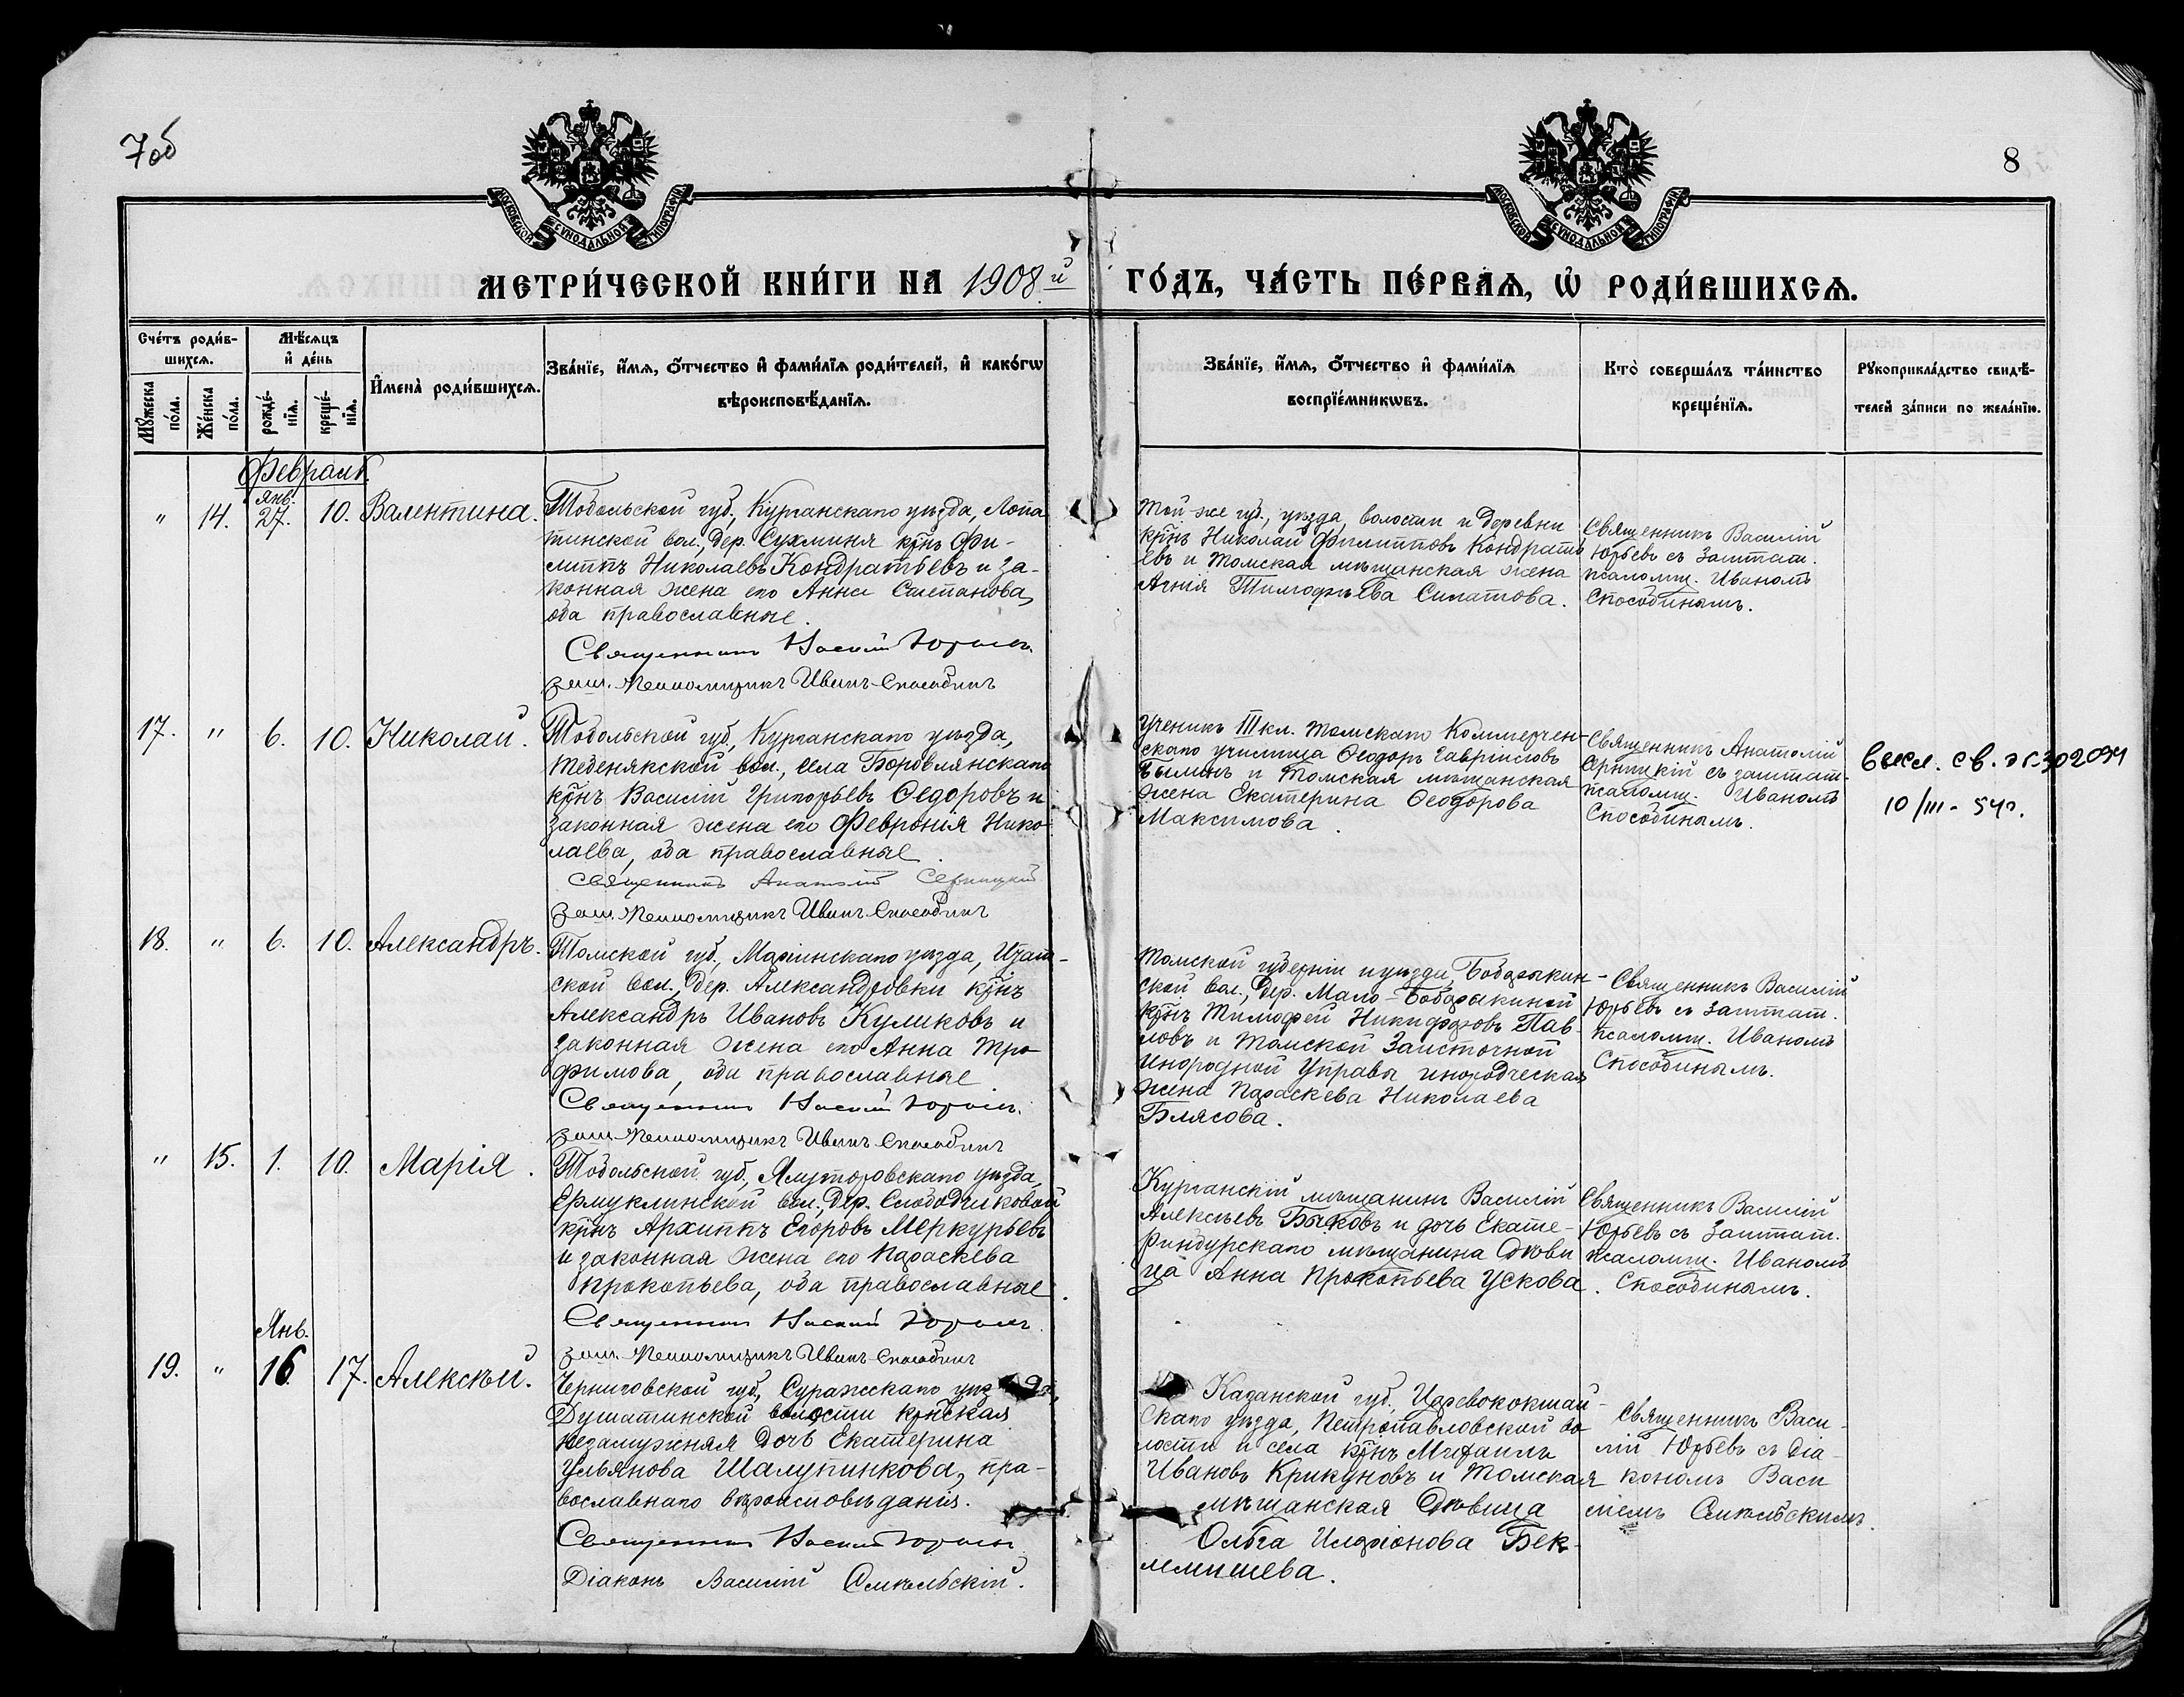 7об
8
МОСКОВСКОЙ СѴНОДАЛЬНОЙ ТИПОГРАФІИ
МОСКОВСКОЙ СѴНОДАЛЬНОЙ ТИПОГРАФІИ
МЕТРИ́ЧЕСКОЙ КНИ́ГИ НА 1908й ГО́ДЪ, ЧА́СТЬ ПЕ́РВАѦ, Ѡ҆ РОДИ́ВШИХСѦ.
Сче́тъ роди́в-
шихсѧ.
Мꙋ́жеска по́ла.
Же́нска по́ла.
Мѣ́сѧцъ
и҆ де́нь
рожде́-нїѧ.
креще́-нїѧ.
И҆мена̀ роди́вшихсѧ.
Зва́нїе, и҆́мѧ, ѻ҆́тчество и҆ фамѝлїѧ роди́телей, и҆ како́гѡ
вѣроисповѣ́данїѧ.
Зва́нїе, и҆́мѧ, ѻ҆́тчество и҆ фами́лїѧ
воспрїе́мникѡвъ.
Кто̀ соверша́лъ та́инство
креще́нїѧ.
Рꙋкоприкла́дство свидѣ́-
телей за́писи по жела́нїю.
Февраль
" 14. Янв. 27. 10. Валентина.
Тобольской губ., Курганскаго уѣзда, Лопа-
тинской вол., дер. Сухминя кр̃нъ Фи-
липпъ Николаевъ Кондратьевъ и за-
конная жена его Анна Степанова,
оба православные.
Священникъ Василій Юрьевъ
Заш. Псаломщикъ Иванъ Способинъ
Той-же губ., уѣзда, волости и деревни
кр̃нъ Николай Филипповъ Кондрать
евъ и Томская мѣщанская жена
Агнія Тимофѣева Силатова.
Священникъ Василій
Юрьевъ съ заштат.
псаломщ. Иваномъ
Способинымъ.
17. " 6. 10. Николай.
Тобольской губ., Курганскаго уѣзда,
Тебенякской вол., села Боровлянскаго
кр̃нъ Василій Григорьевъ Ѳедоровъ и
законная жена его Февронія Нико-
лаева, оба православные.
Священникъ Анатолій Серницкій
Заш. Псаломщикъ Иванъ Способинъ
Ученикъ III кл. Томскаго Коммерчен-
скаго училища Ѳеодоръ Гавріиловъ
Былинъ и Томская мѣщанская
жена Екатерина Ѳеодорова
Максимова.
Священникъ Анатолій
Серницкій съ заштат-
псаломщ. Иваномъ
Способинымъ.
высл. св. 302094
10/III - 54г.
18. " 6. 10. Александръ.
Томской губ., Маріинскаго уѣзда, Изат-
ской вол., дер. Александровки кр̃нъ
Александръ Ивановъ Куликовъ и
законная жена его Анна Тро-
фимова, оба православные.
Священникъ Василій Юрьевъ.
Заш. Псаломщикъ Иванъ Способинъ
Томской губерніи и уѣзда, Бобарыкин-
ской вол., дер. Мало-Бобарыкиной
кр̃нъ Тимофей Никифоровъ Пав-
ловъ и Томской Заисточной
Инородной Управы инородческая
жена Параскева Николаева
Блясова.
Священникъ Василій
Юрьевъ съ заштат.
псаломщ. Иваномъ
Способинымъ.
" 15. 1. 10. Марія.
Тобольской губ., Ялуторовскаго уѣзда,
Ермуклинской вол., дер. Слободчиковой
кр̃нъ Архиппъ Егоровъ Меркурьевъ
и законная жена его Параскева
Прокопьева, оба православные.
Священникъ Василій Юрьевъ.
Заш. Псаломщикъ Иванъ Способинъ
Курганскій мѣщанинъ Василій
Алексѣевъ Быковъ и дочь Екате-
ринбурскаго мѣщанина дѣви
ца Анна Прокопьева Ускова.
Священникъ Василій
Юрьевъ съ заштат.
псаломщ. Иваномъ
Способинымъ.
19. " Янв. 16. 17. Алексѣй.
Черниговской губ., Суражскаго уѣзда,
Душатинской волости кр̃нская
незамужняя дочь Екатерина
Ульянова Шалупинкова, пра-
вославнаго вѣроисповѣданія.
Священникъ Василій Юрьевъ
Діаконъ Василій Смѣльскій.
Казанской губ., Царевококшай-
скаго уѣзда, Петропавловской во
лости и села кр̃нъ Михаилъ
Ивановъ Крикуновъ и Томская
мѣщанская дѣвица
Ольга Иларіонова Бек-
лемишева.
Священникъ Васи-
лій Юрьевъ съ діа-
кономъ Васи
ліемъ Смѣльскимъ.